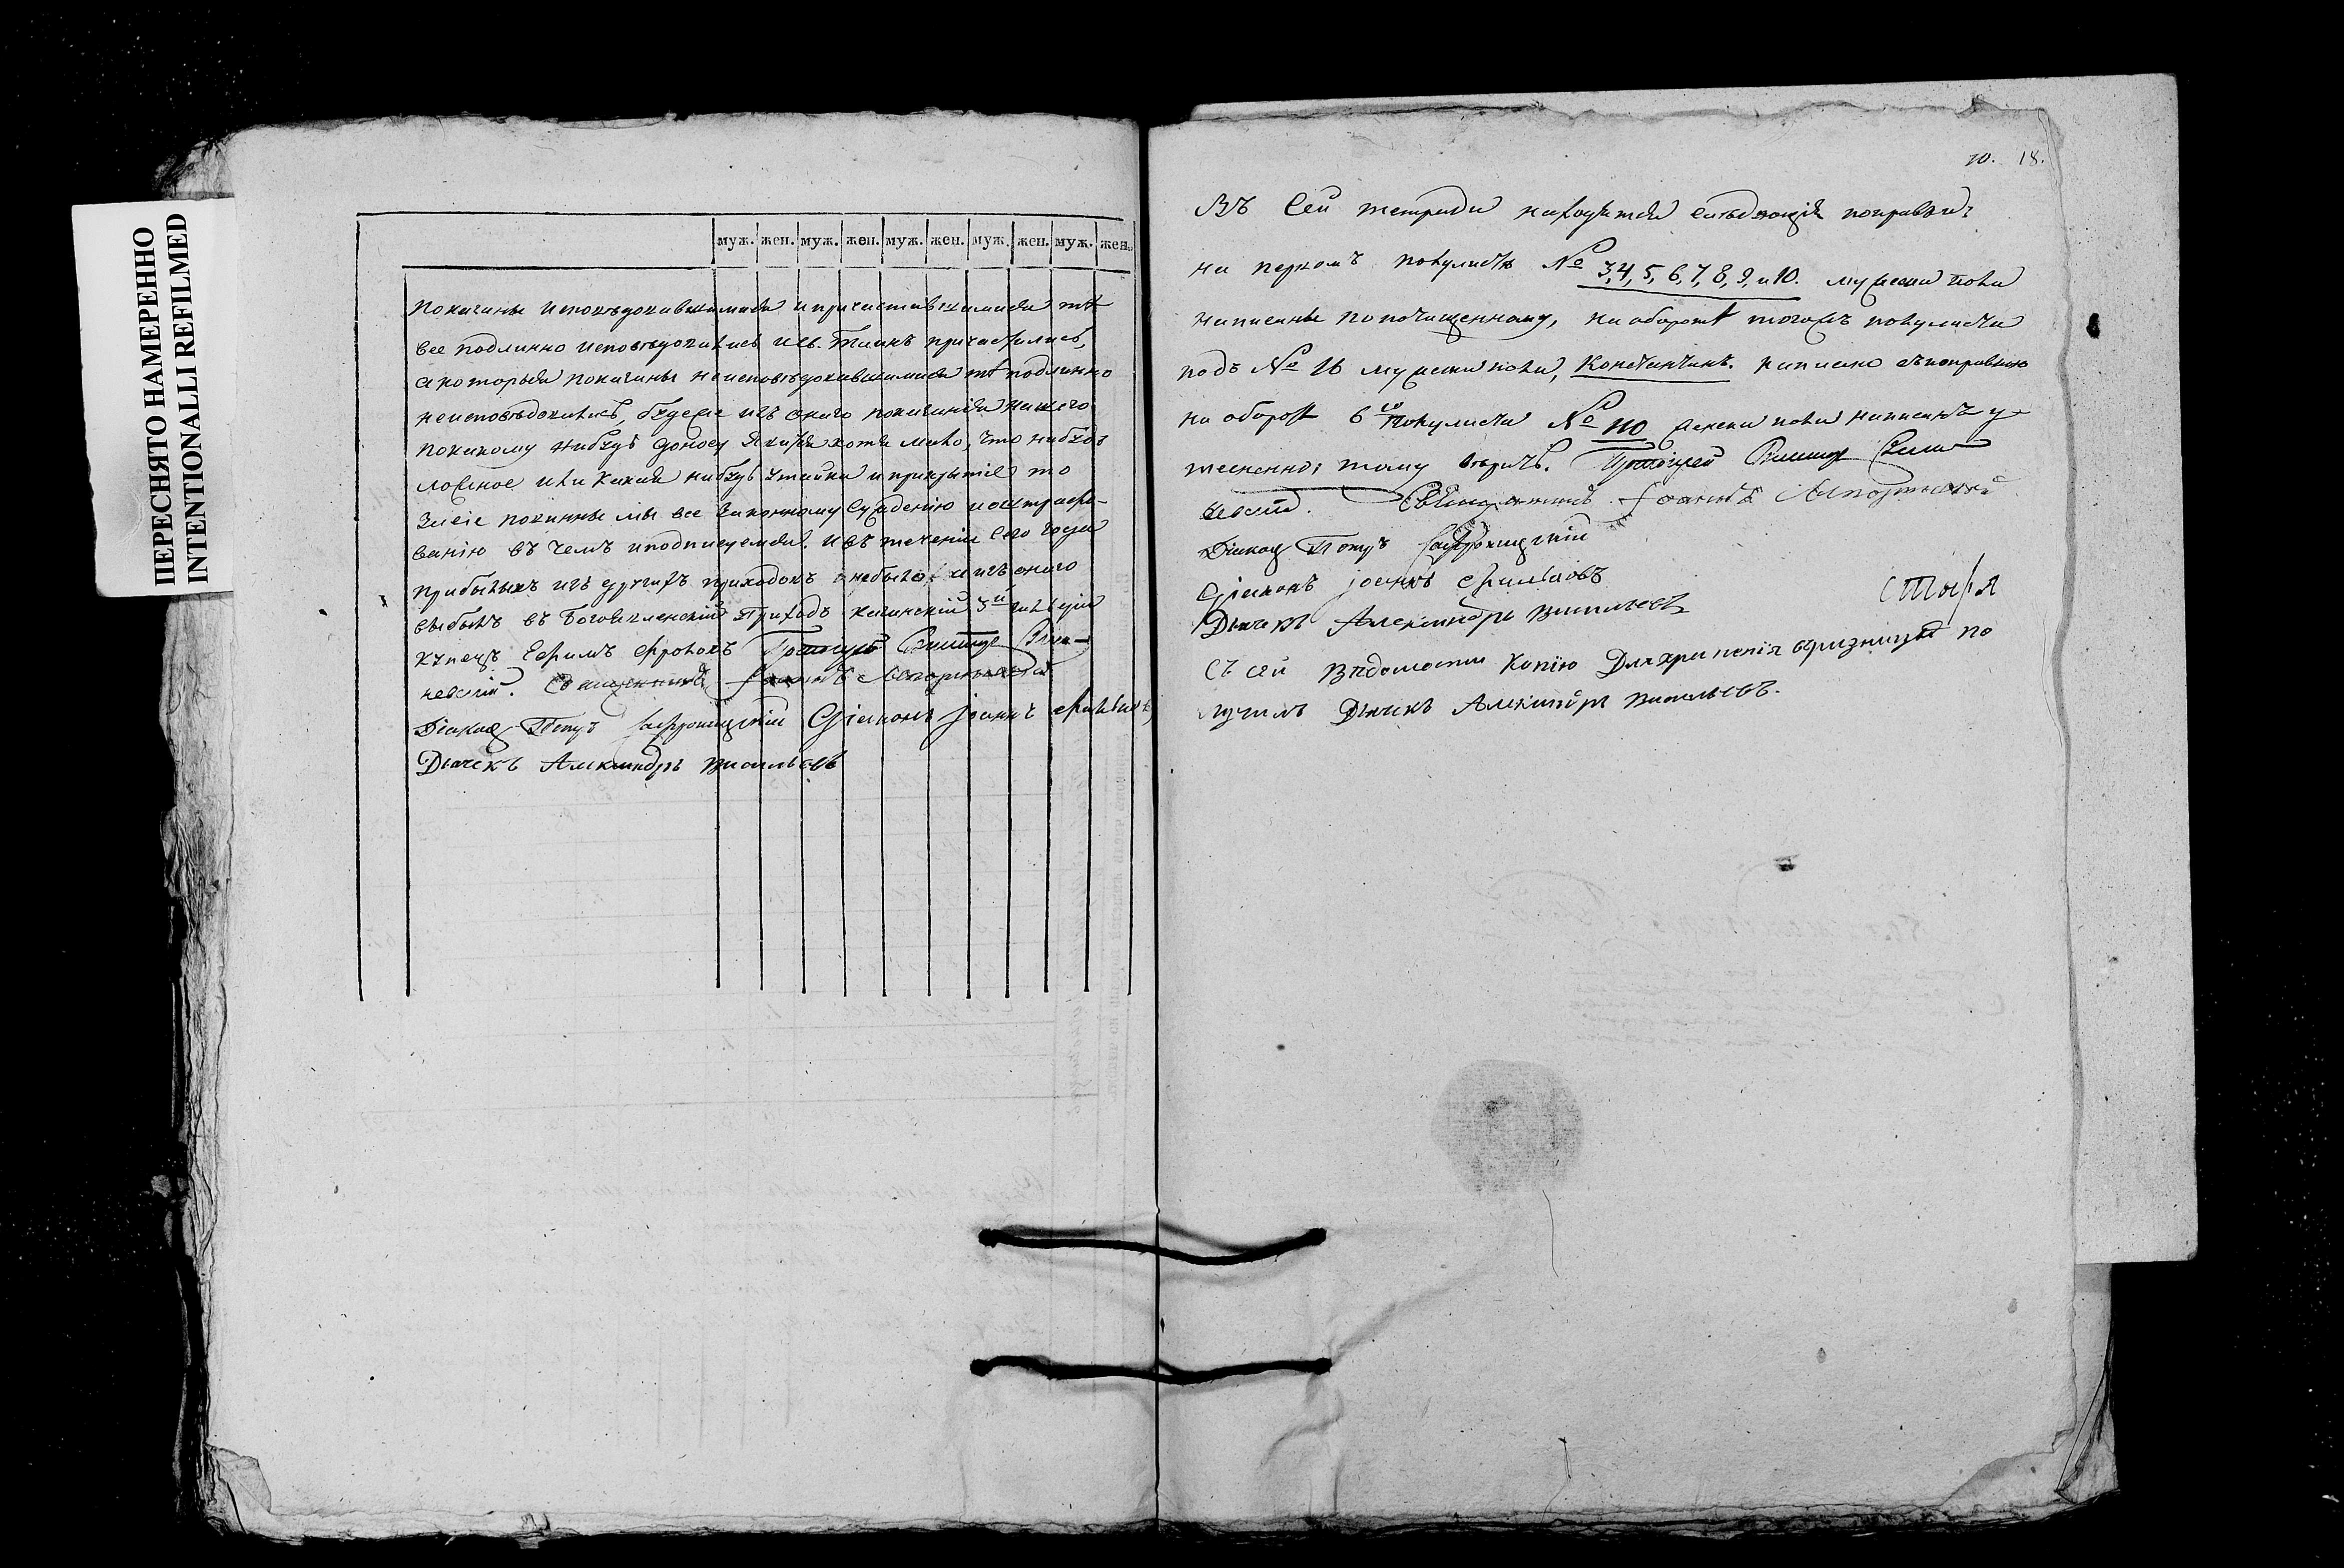 ПЕРЕСНЯТО НАМЕРЕННО
INTENTIONALLI REFILMED
муж. жен. муж. жен. муж. жен. муж. жен. муж. жен.
показаны исповѣдовавшимися и причастившимися тѣ
все подлинно исповѣдовались и св. Таинъ причастились,
а которыя показаны неисповѣдовавшимися тѣ подлинно
неисповѣдовались, буде же изъ онаго показанія нашего
по какому нибудь доносу явится хотя мало, что нибудь
ложное или какая нибудь утайка и прикрытіе то
за сіе повинны мы все законному сужденію и оштрафо-
ванію въ чемъ и подписуемся. и въ теченіи сего года
прибылыхъ изъ другихъ приходовъ небыло, а изъ онаго
выбылъ въ Богоявленскій Приходъ 3й гильдіи
купецъ Ефимъ Фроловъ Протоіерей
невскій. Священникъ Іоаннъ
Діаконъ Петръ Діаконъ Іоаннъ
Дьячекъ Александръ Васильевъ
10. 18.
Въ сей тетради находятся слѣдующія поправки:
на первомъ полулистѣ № 3, 4, 5, 6, 7, 8, 9, и 10. мужеска пола
написаны по почищенному, на оборотѣ тогожъ полулиста
подъ № 16 мужеска пола, Константинъ. написано съ поправкою
на оборотѣ 6го полулиста № 110 женска пола написанъ у
тому Протоіерей
невскій. Священникъ Іоаннъ
Діаконъ Петръ
Діаконъ Іоаннъ
Дьячекъ Александръ Васильевъ
Съ сей Вѣдомости Копію Для храненія въ ризницѣ по
лучилъ Дьячекъ Александръ Васильевъ.